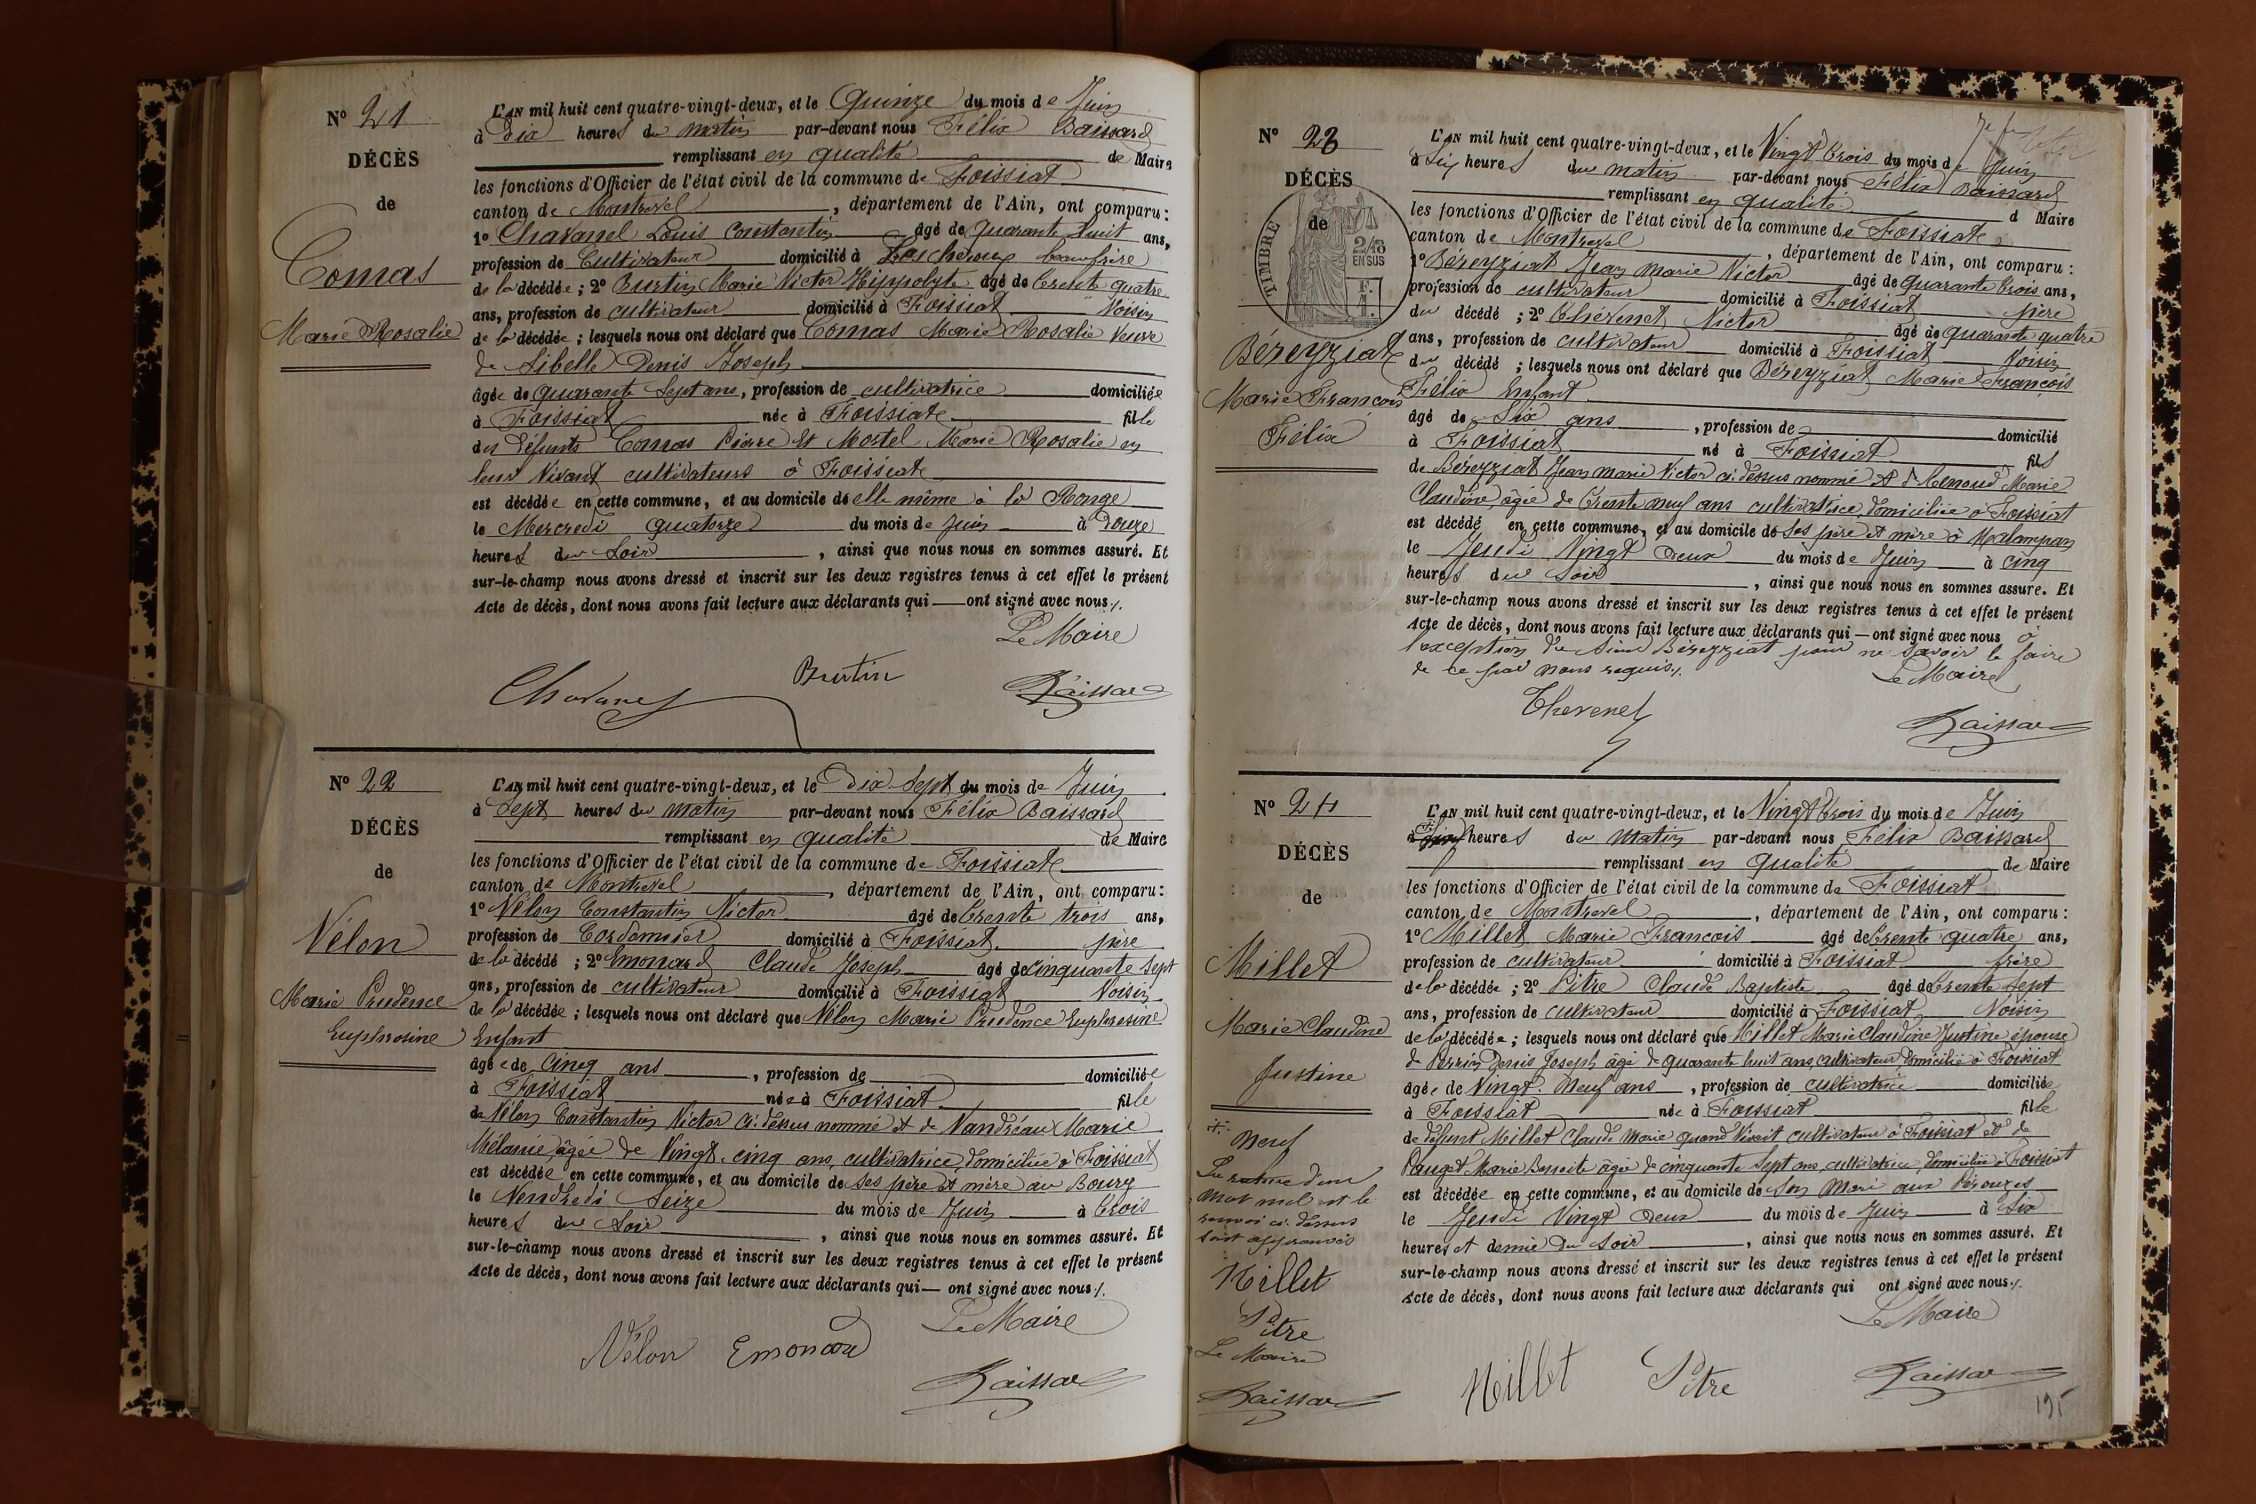 N° 21
DÉCÈS
de
Comas
Marie Rosalie
L'AN mil huit cent quatre-vingt-deux, et le Quinze du mois de Juin
à dix heures du matin par-devant nous Félix Baissard
remplissant en qualité de Maire
les fonctions d'Officier de l'état civil de la commune de Foissiat
canton de Montrevel, département de l'Ain, ont comparu:
1° Chavanel Louis Constantin âgé de quarante huit ans,
profession de Cultivateur domicilié à Lescheroux beau frère
de la décédée; 2° Burtin Marie Victor Hippolyte âgé de trente quatre
ans, profession de cultivateur domicilié à Foissiat Voisin
de la décédée; lesquels nous ont déclaré que Comas Marie Rosalie Veuve
de Libelle Denis Joseph
âgée de quarante Sept ans, profession de cultivatrice domiciliée
à Foissiat née à Foissiat fille
des défunts Comas Pierre et Mortel Marie Rosalie en
leur Vivant cultivateurs à Foissiat
est décédée en cette commune, et au domicile de elle même à la
le Mercredi quatorze du mois de Juin à Douze
heures du Soir, ainsi que nous nous en sommes assuré. Et
sur-le-champ nous avons dressé et inscrit sur les deux registres tenus à cet effet le présent
Acte de décès, dont nous avons fait lecture aux déclarants qui — ont signé avec nous /.
Le Maire
Chavanel Burtin Baissard
N° 22
DÉCÈS
de
Vélon
Marie Prudence
Euphrosine
L'AN mil huit cent quatre-vingt-deux, et le Dix Sept du mois de Juin
à Sept heures du matin par-devant nous Félix Baissard
remplissant en qualité de Maire
les fonctions d'Officier de l'état civil de la commune de Foissiat
canton de Montrevel, département de l'Ain, ont comparu:
1° Vélon Constantin Victor âgé de trente trois ans,
profession de Cordonnier domicilié à Foissiat père
de la décédé; 2° Emonard Claude Joseph âgé de cinquante Sept
ans, profession de cultivateur domicilié à Foissiat Voisin
de la décédée; lesquels nous ont déclaré que Vélon Marie Prudence Euphrosine
Enfant
âgée de Cinq ans, profession de domiciliée
à Foissiat née à Foissiat fille
de Vélon Constantin Victor ci-dessus nommé et de Vandréau Marie
Mélanie âgée de Vingt cinq ans, cultivatrice, domiciliée à Foissiat
est décédée en cette commune, et au domicile de ses père et mère au Bourg
le Vendredi Seize du mois de Juin à trois
heures du Soir, ainsi que nous nous en sommes assuré. Et
sur-le-champ nous avons dressé et inscrit sur les deux registres tenus à cet effet le présent
Acte de décès, dont nous avons fait lecture aux déclarants qui — ont signé avec nous /.
Le Maire
Vélon Emonard Baissard
N° 23
DÉCÈS
de
TIMBRE
2/10
EN SUS
Béreyziat
Marie François
Félix
L'AN mil huit cent quatre-vingt-deux, et le Vingt trois du mois de Juin
à Six heures du matin par-devant nous Félix Baissard
remplissant en qualité d Maire
les fonctions d'Officier de l'état civil de la commune de Foissiat
canton de Montrevel, département de l'Ain, ont comparu:
1° Béreyziat Jean Marie Victor âgé de quarante trois ans,
profession de cultivateur domicilié à Foissiat père
du décédé; 2° Thévenet Victor âgé de quarante quatre
ans, profession de cultivateur domicilié à Foissiat Voisin
du décédé; lesquels nous ont déclaré que Béreyziat Marie François
Félix Enfant
âgé de Six ans, profession de domicilié
à Foissiat né à Foissiat fils
de Béreyziat Jean Marie Victor ci-dessus nommé et de Renoud Marie
Claudine, âgée de trente neuf ans cultivatrice, domiciliée à Foissiat
est décédé en cette commune, et au domicile de Ses père et mère à Malampan
le Jeudi Vingt deux du mois de Juin à cinq
heures du Soir, ainsi que nous nous en sommes assuré. Et
sur-le-champ nous avons dressé et inscrit sur les deux registres tenus à cet effet le présent
Acte de décès, dont nous avons fait lecture aux déclarants qui — ont signé avec nous à
l'exception du Sieur Béreyziat pour ne savoir le faire
de ce par nous requis /.
Le Maire
Thevenet Baissard
N° 24
DÉCÈS
de
Millet
Marie Claudine
Justine
+ Neuf
La rature d'un
mot nul et le
renvoi ci-dessus
sont approuvés
Millet
Pitre
Le Maire
Baissard
L'AN mil huit cent quatre-vingt-deux, et le Vingt trois du mois de Juin
à heures du matin par-devant nous Félix Baissard
remplissant en qualité de Maire
les fonctions d'Officier de l'état civil de la commune de Foissiat
canton de Montrevel, département de l'Ain, ont comparu:
1° Millet Marie François âgé de trente quatre ans,
profession de cultivateur domicilié à Foissiat frère
de la décédée; 2° Pitre Claude Baptiste âgé de trente Sept
ans, profession de cultivateur domicilié à Foissiat Voisin
de la décédée; lesquels nous ont déclaré que Millet Marie Claudine Justine épouse
de Perrin Denis Joseph âgé de quarante huit ans, cultivateur domicilié à Foissiat
âgée de Vingt Neuf ans, profession de cultivatrice domiciliée
à Foissiat née à Foissiat fille
de défunt Millet Claude Marie quand Vivait cultivateur à Foissiat et de
Pauget Marie âgée de cinquante Sept ans, cultivatrice, domiciliée à Foissiat
est décédée en cette commune, et au domicile de Son Mari aux Pérouzes
le Jeudi Vingt Deux du mois de Juin à Six
heures et demie du Soir, ainsi que nous nous en sommes assuré. Et
sur-le-champ nous avons dressé et inscrit sur les deux registres tenus à cet effet le présent
Acte de décès, dont nous avons fait lecture aux déclarants qui ont signé avec nous /.
Le Maire
Millet Pitre Baissard
195